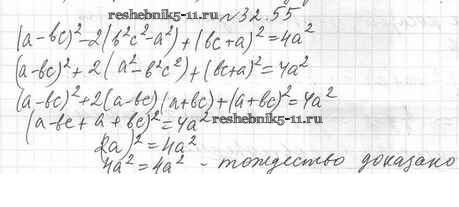 reshebnik5-11.ru №32.55
(a-bc)²-2(b²c²-a²)+(bc+a)²=4a²
(a-bc)²+2(a²-b²c²)+(bc+a)²=4a²
(a-bc)²+2(a-bc)(a+bc)+(a+bc)²=4a²
(a-bc+a+bc)²=4a² reshebnik5-11.ru
2a)²=4a²
4a²=4a² - тождество доказано